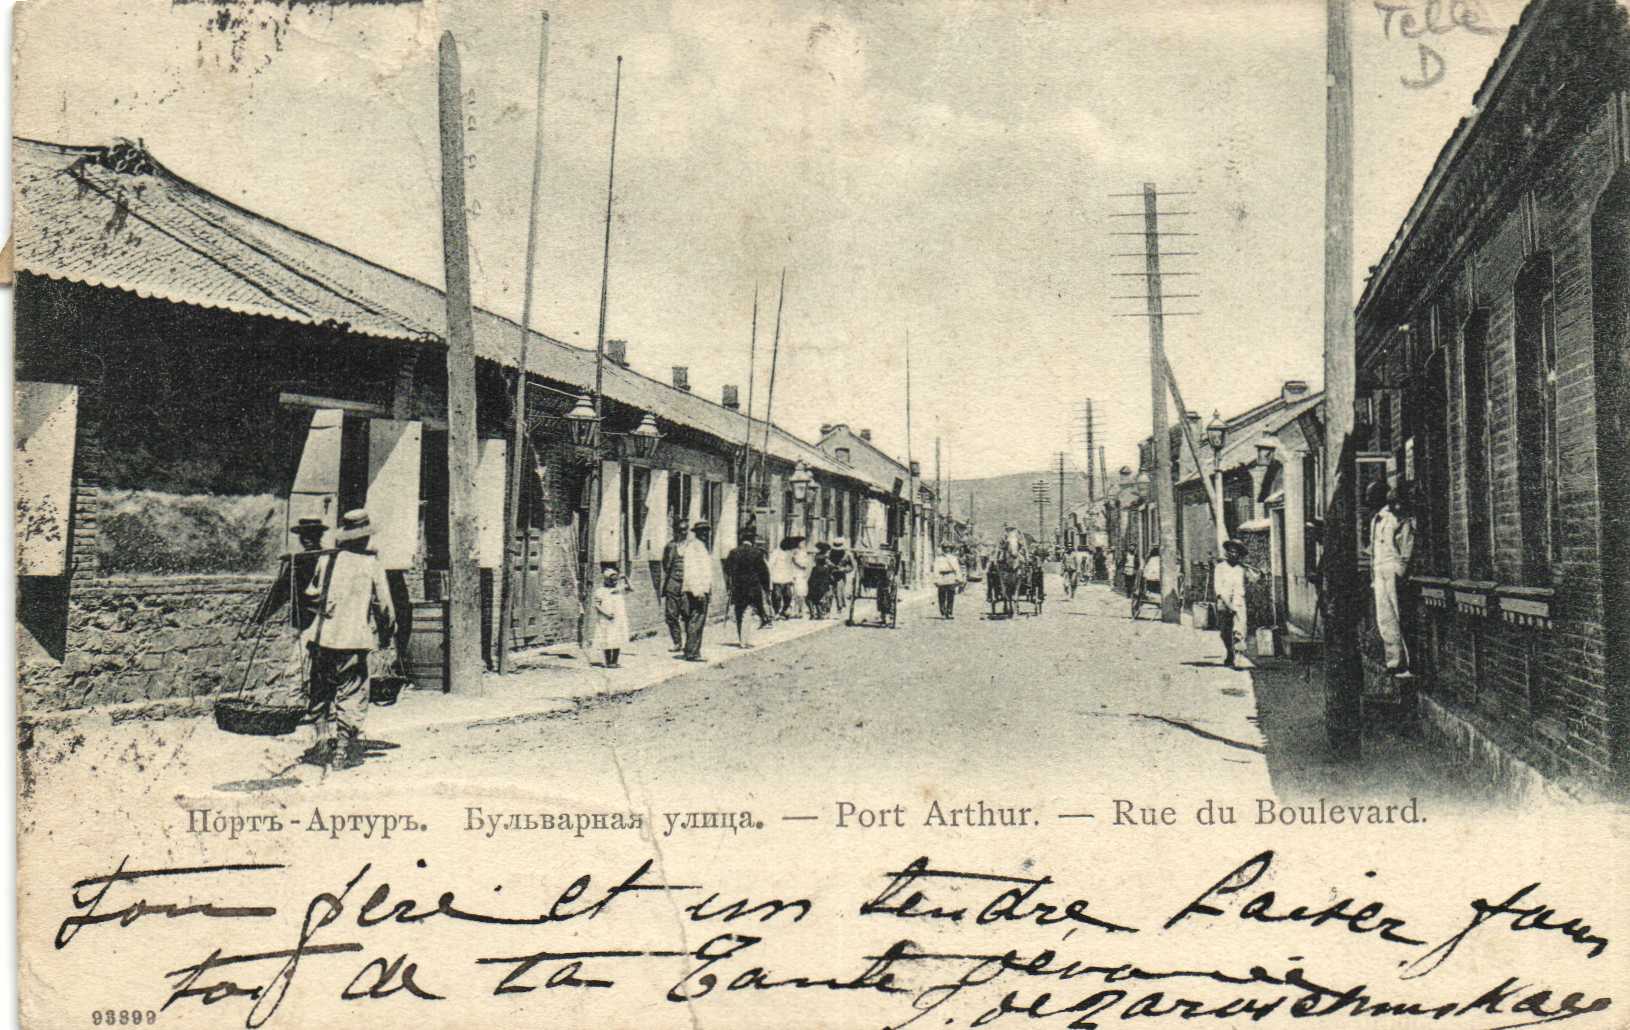 Telle
D
Пóртъ-Артуръ. Бульварная улица. — Port Arthur. — Rue du Boulevard.
Ton père et un tendre baiser pour
toi de ta Tante dévouée
93899